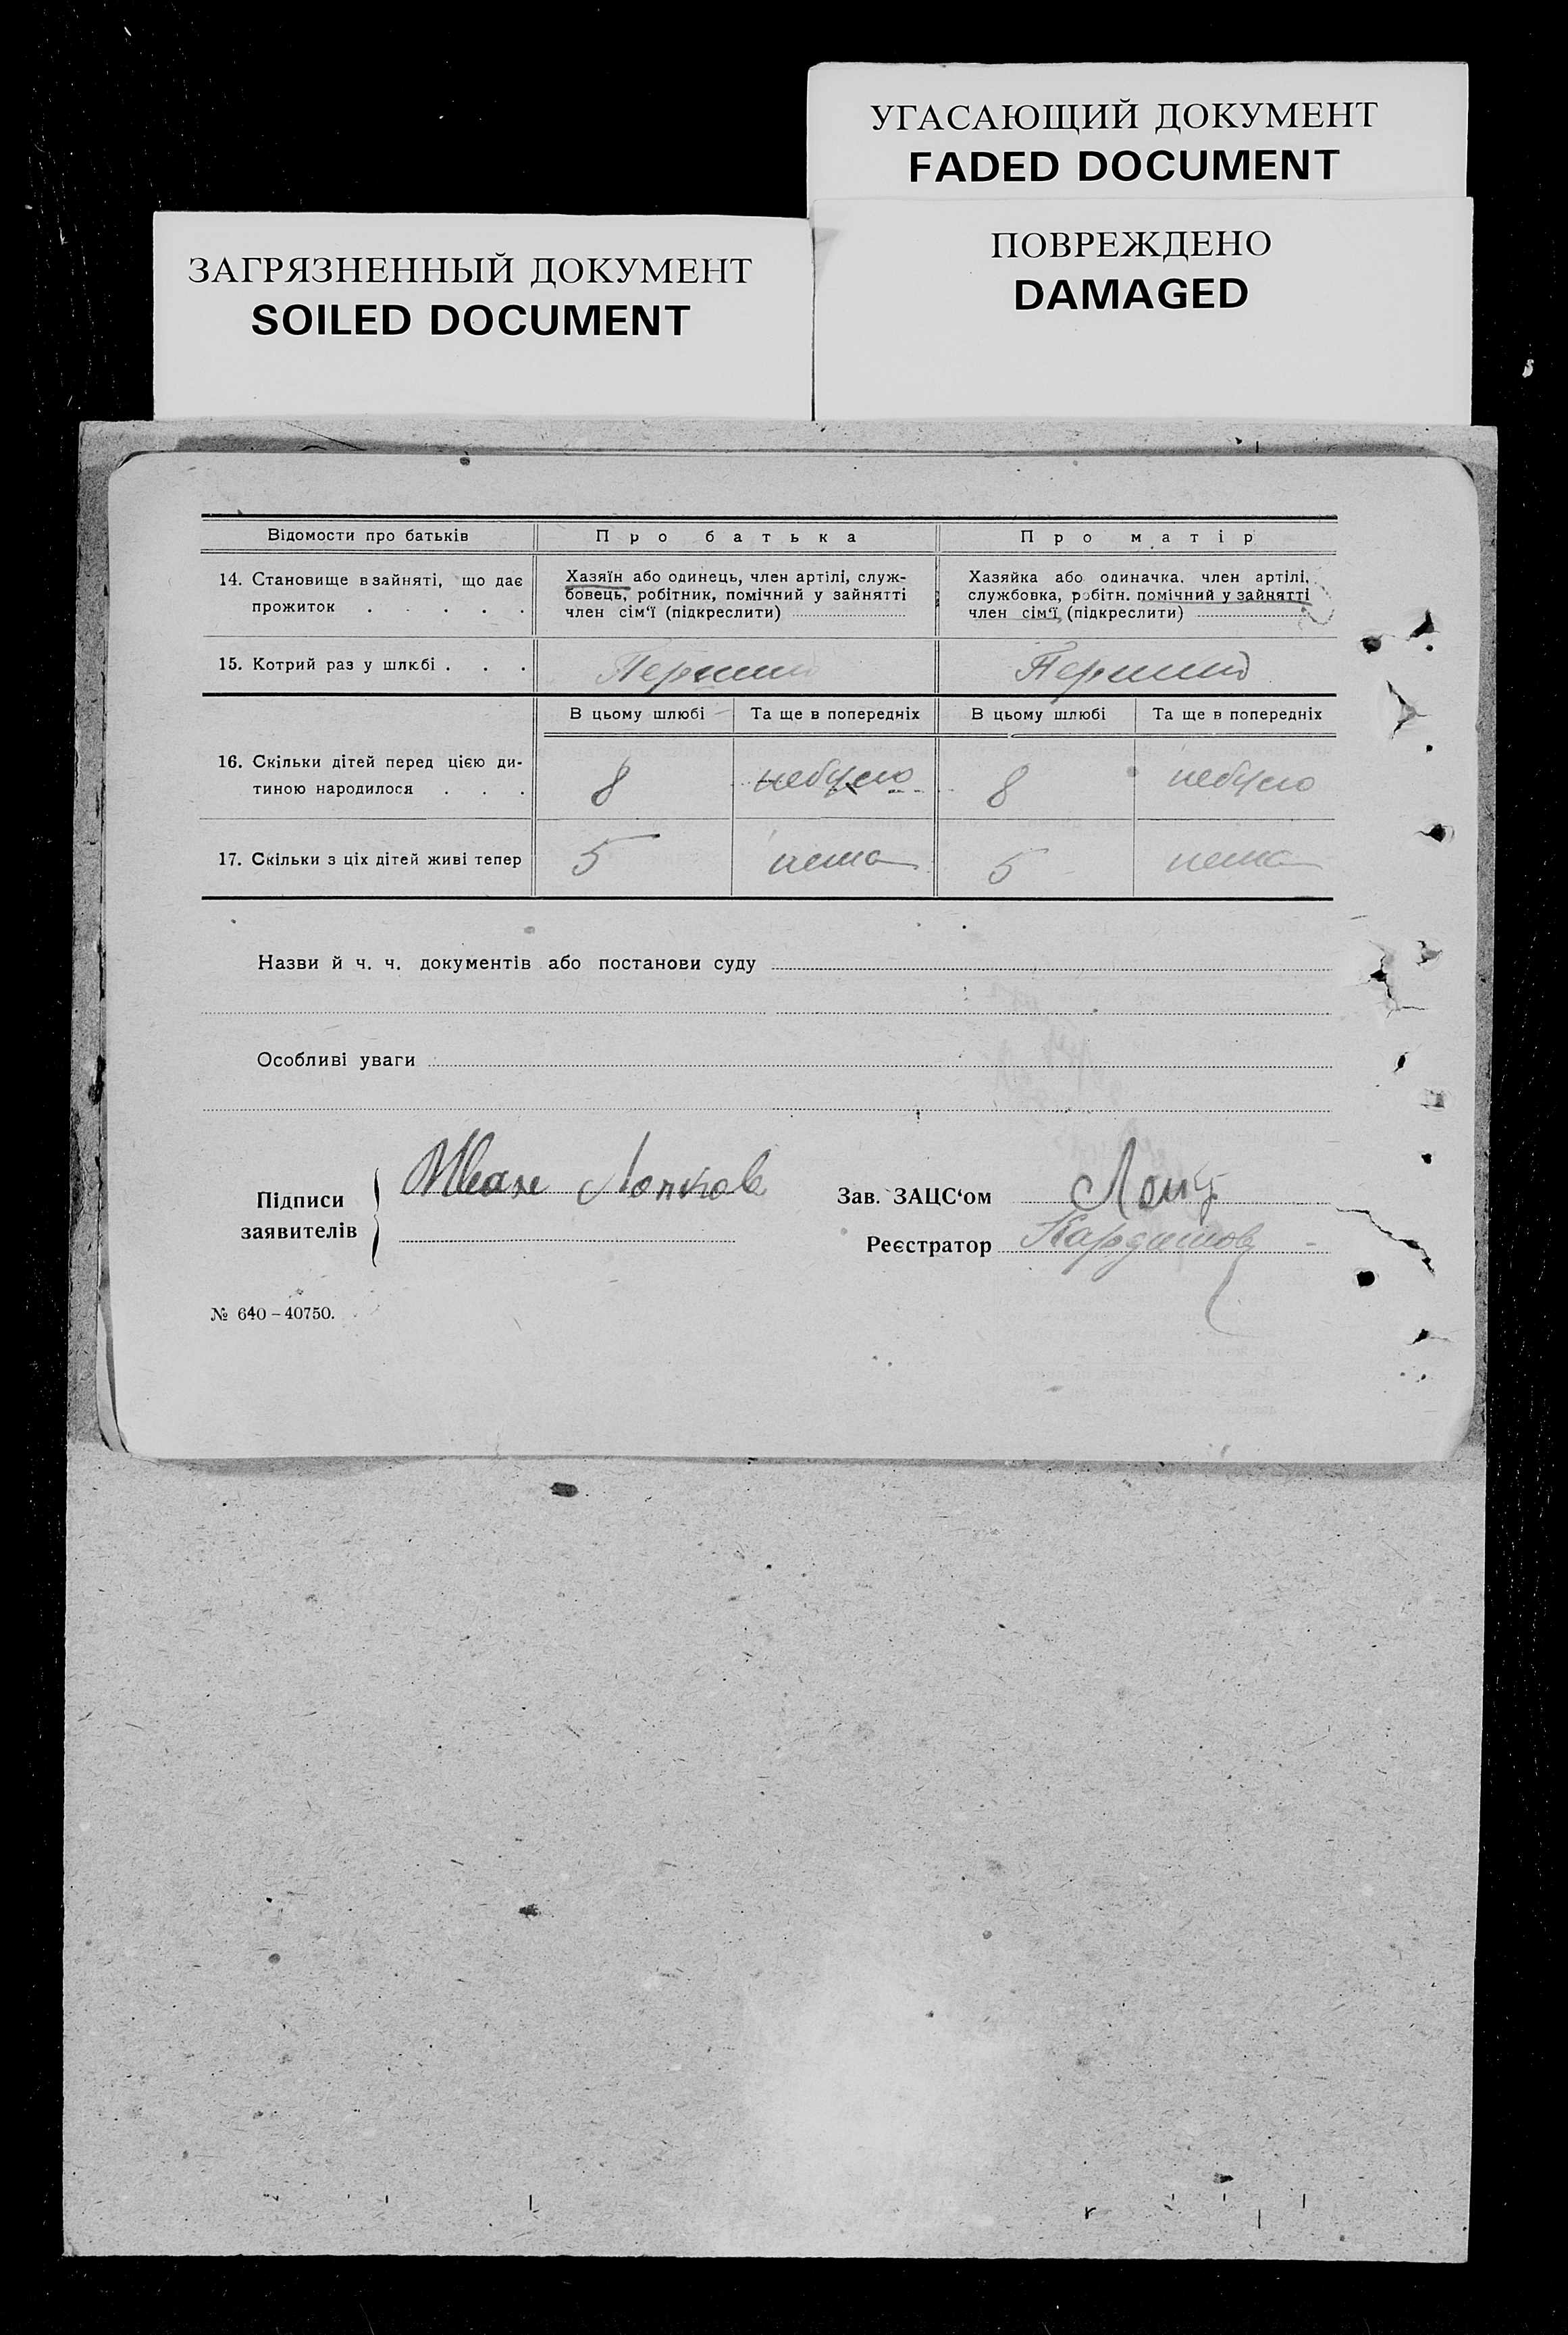 УГАСАЮЩИЙ ДОКУМЕНТ
FADED DOCUMENT
ПОВРЕЖДЕНО
DAMAGED
ЗАГРЯЗНЕННЫЙ ДОКУМЕНТ
SOILED DOCUMENT
Відомости про батьків Про батька Про матір
14. Становище в зайняті, що дає прожиток . . . . .
Хазяїн або одинець, член артілі, служ-
бовець, робітник, помічний у зайнятті
член сім'ї (підкреслити)
Хазяйка або одиначка, член артілі,
службовка, робітн. помічний у зайнятті
член сім'ї, (підкреслити)
15. Котрий раз у шлюбі . . . Перший Перший
В цьому шлюбі Та ще в попередніх В цьому шлюбі Та ще в попередніх
16. Скільки дітей перед цією ди-
тиною народилося . . . 8 небуло 8 небуло
17. Скільки з ціх дітей живі тепер 5 нема 5 нема
Назви й ч. ч. документів або постанови суду
Особливі уваги
Підписи
заявителів
Зав. ЗАЦС'ом
Реєстратор
№ 640–40750.